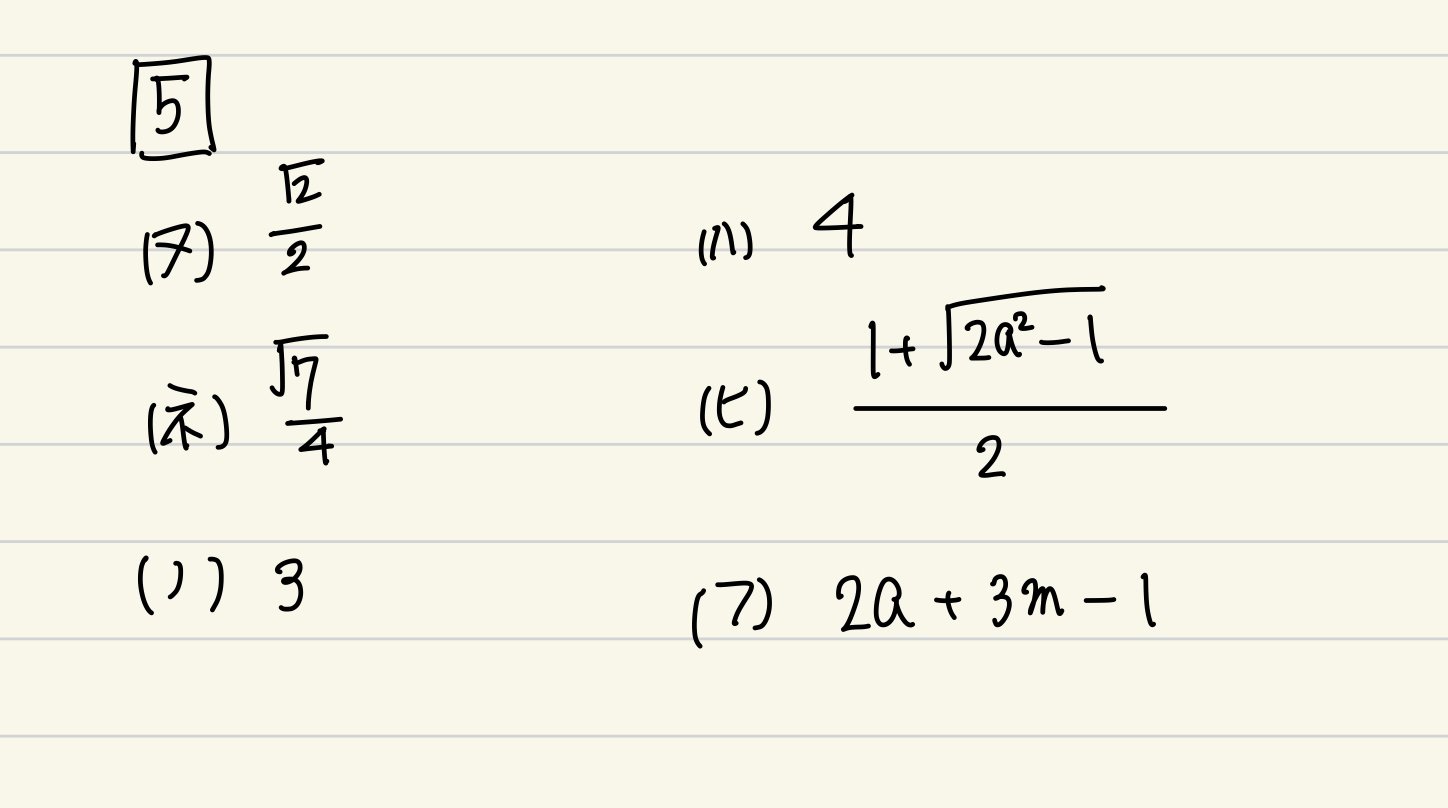 5
(ヌ) √2/2
(ネ) √7/4
(ノ) 3
(ハ) 4
(ヒ) (1+√(2a²-1))/2
(フ) 2a+3m-1